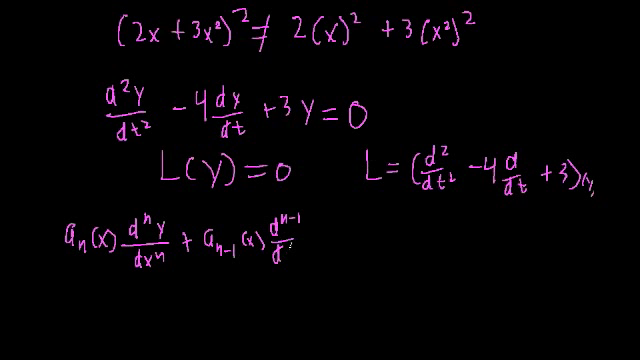 (2x + 3x²)² ≠ 2(x)² + 3(x²)²
d²y/dt² - 4 dy/dt + 3y = 0
L(y) = 0 L = (d²/dt² - 4 d/dt + 3)(y)
aₙ(x) dⁿy/dxⁿ + aₙ₋₁(x) dⁿ⁻¹/d